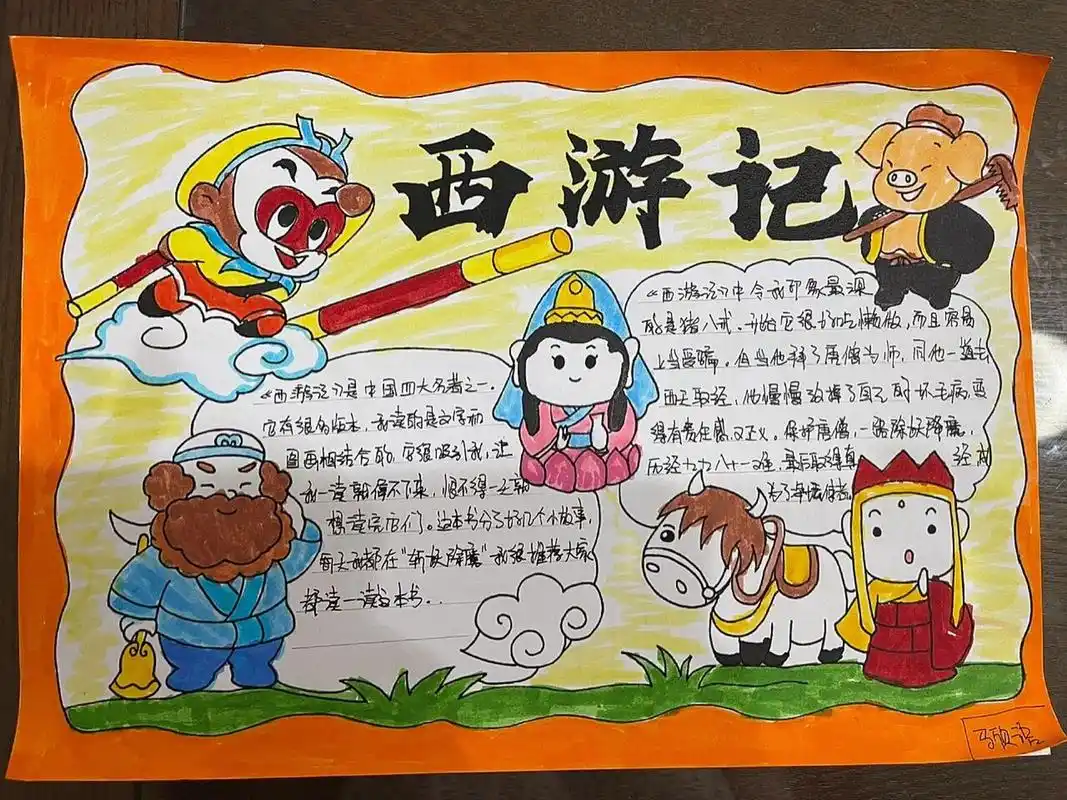 西游记
《西游记》是中国四大名著之一.
它有很多版本.我读的是文字和
图画相结合的.它很吸引我,让
我一读就停不下来,恨不得一天就
想读完它们。这本书分了好几个小故事,
每天都在"斩妖除魔"我很推荐大家
都读一读这本书..
《西游记》中令我印象最深
的是猪八戒.开始它很好吃懒做,而且容易
上当受骗,但当他拜了唐僧为师,同他一道去
西天取经,他慢慢改掉了自己的坏毛病,变
得有责任感,又正义。保护唐僧,一路除妖降魔,
历经九九八十一难,最后取得真 经成
为了净坛使者.
马